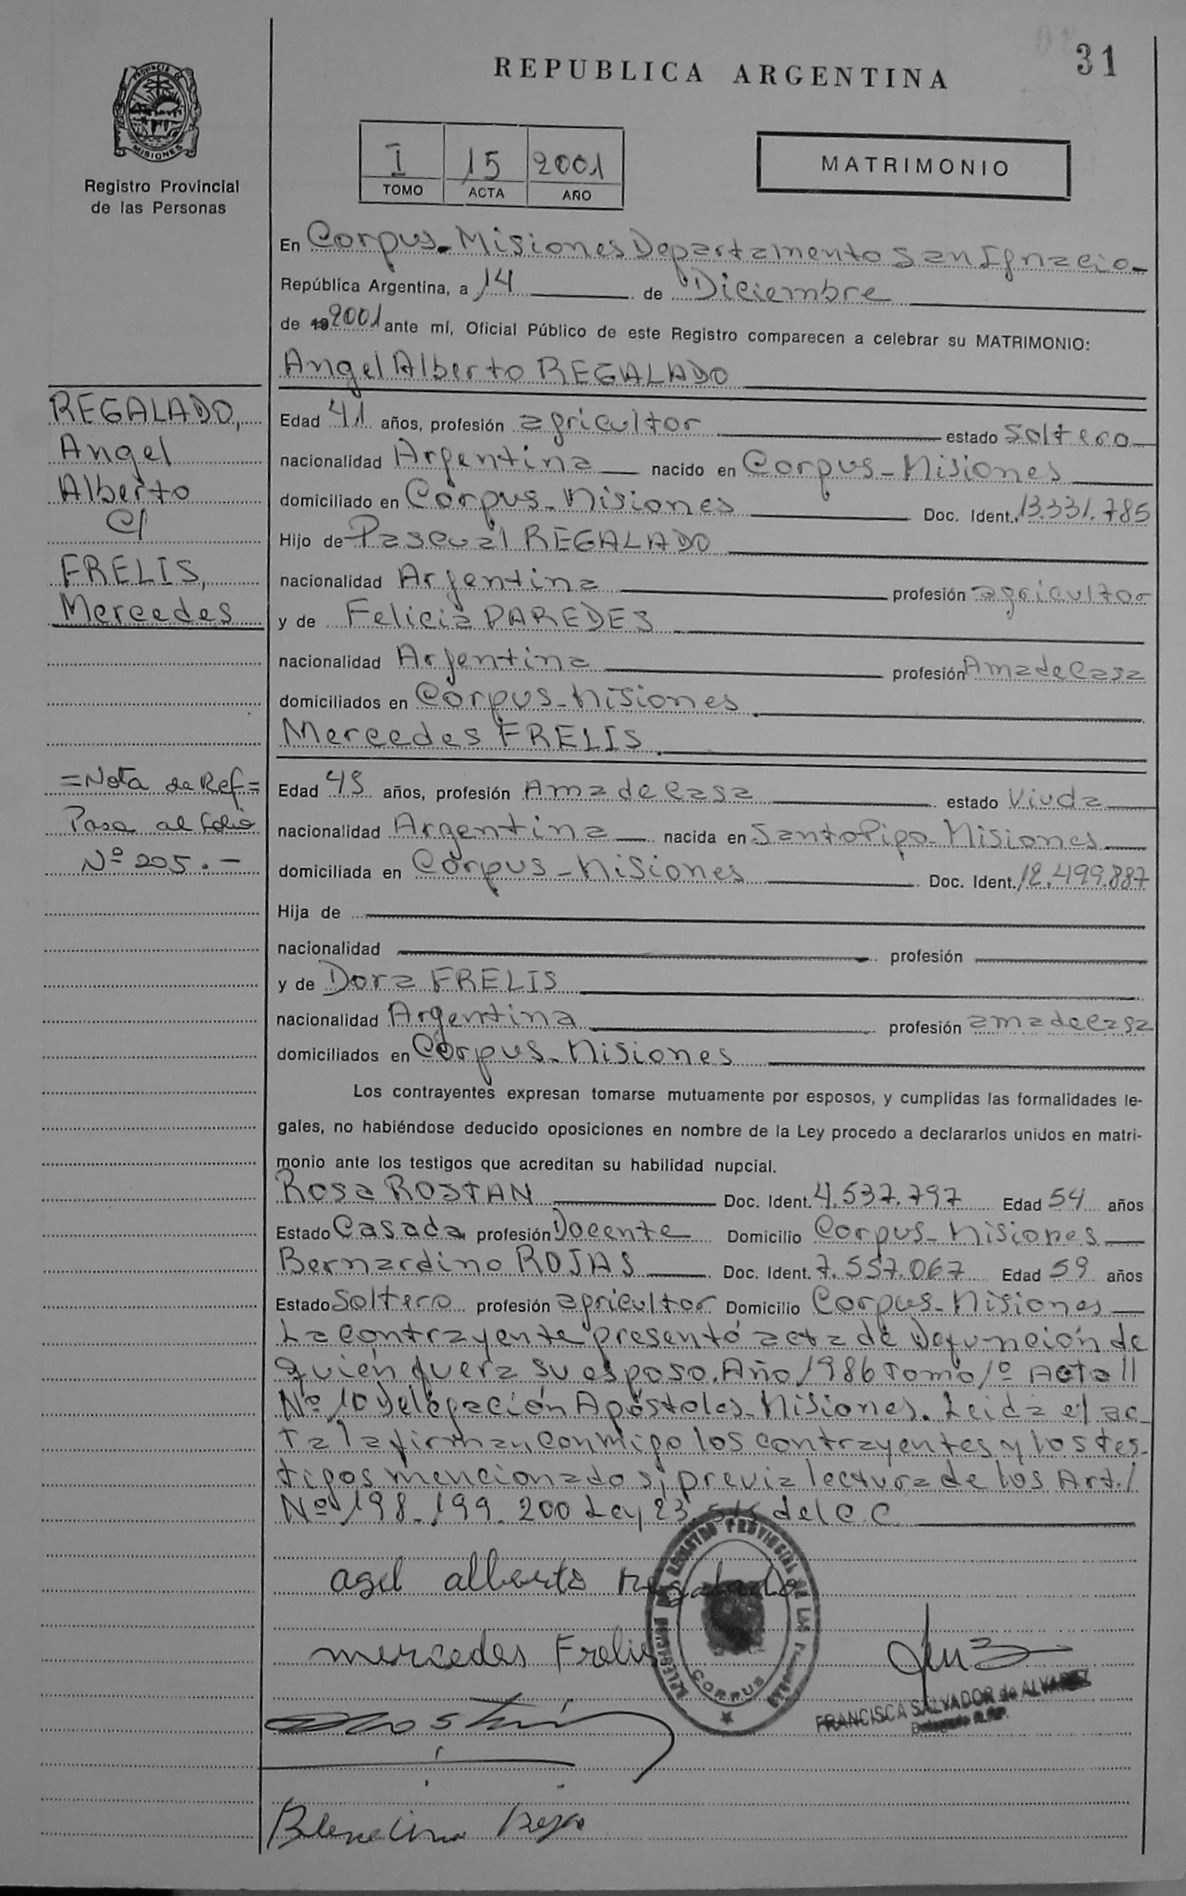 31
REPUBLICA ARGENTINA
PROVINCIA DE
MISIONES
Registro Provincial
de las Personas
I 15 2001
TOMO ACTA AÑO
MATRIMONIO
En Corpus-Misiones Departamento San Ignacio-
República Argentina, a 14 de Diciembre
de 19 2001 ante mí, Oficial Público de este Registro comparecen a celebrar su MATRIMONIO:
Angel Alberto REGALADO
REGALADO,
Angel
Alberto
C/
FRELIS,
Mercedes
Edad 41 años, profesión agricultor estado Soltero
nacionalidad Argentina nacido en Corpus-Misiones
domiciliado en Corpus-Misiones Doc. Ident. 13.331.785
Hijo de Pascual REGALADO
nacionalidad Argentina profesión agricultor
y de Felicia PAREDES
nacionalidad Argentina profesión Ama de Casa
domiciliados en Corpus-Misiones
Mercedes FRELIS
=Nota de Ref=
Pasa al folio
Nº 205.-
Edad 45 años, profesión Ama de Casa estado Viuda
nacionalidad Argentina nacida en Santo Pipo-Misiones
domiciliada en Corpus-Misiones Doc. Ident. 12.499.887
Hija de
nacionalidad profesión
y de Dora FRELIS
nacionalidad Argentina profesión ama de casa
domiciliados en Corpus-Misiones
Los contrayentes expresan tomarse mutuamente por esposos, y cumplidas las formalidades le-
gales, no habiéndose deducido oposiciones en nombre de la Ley procedo a declararlos unidos en matri-
monio ante los testigos que acreditan su habilidad nupcial.
Rosa ROSTAN Doc. Ident. 4.537.797 Edad 54 años
Estado Casada profesión Docente Domicilio Corpus-Misiones
Bernardino ROJAS Doc. Ident. 7.557.067 Edad 59 años
Estado Soltero profesión agricultor Domicilio Corpus-Misiones
La contrayente presentó acta de Defunción de
quién fuera su esposo. Año 1986 Tomo 1º Acta
Nº 10 Delegación Apóstoles-Misiones. Leida el ac-
ta la firman conmigo los contrayentes y los tes-
tigos mencionados, previa lectura de los Art.
Nº 198. 199. 200 Ley 23. del C.C.
agel alberto Regalado
mercedes Frelis
REGISTRO PROVINCIAL DE LAS PERSONAS
CORPUS
FRANCISCA SALVADOR de ALVAREZ